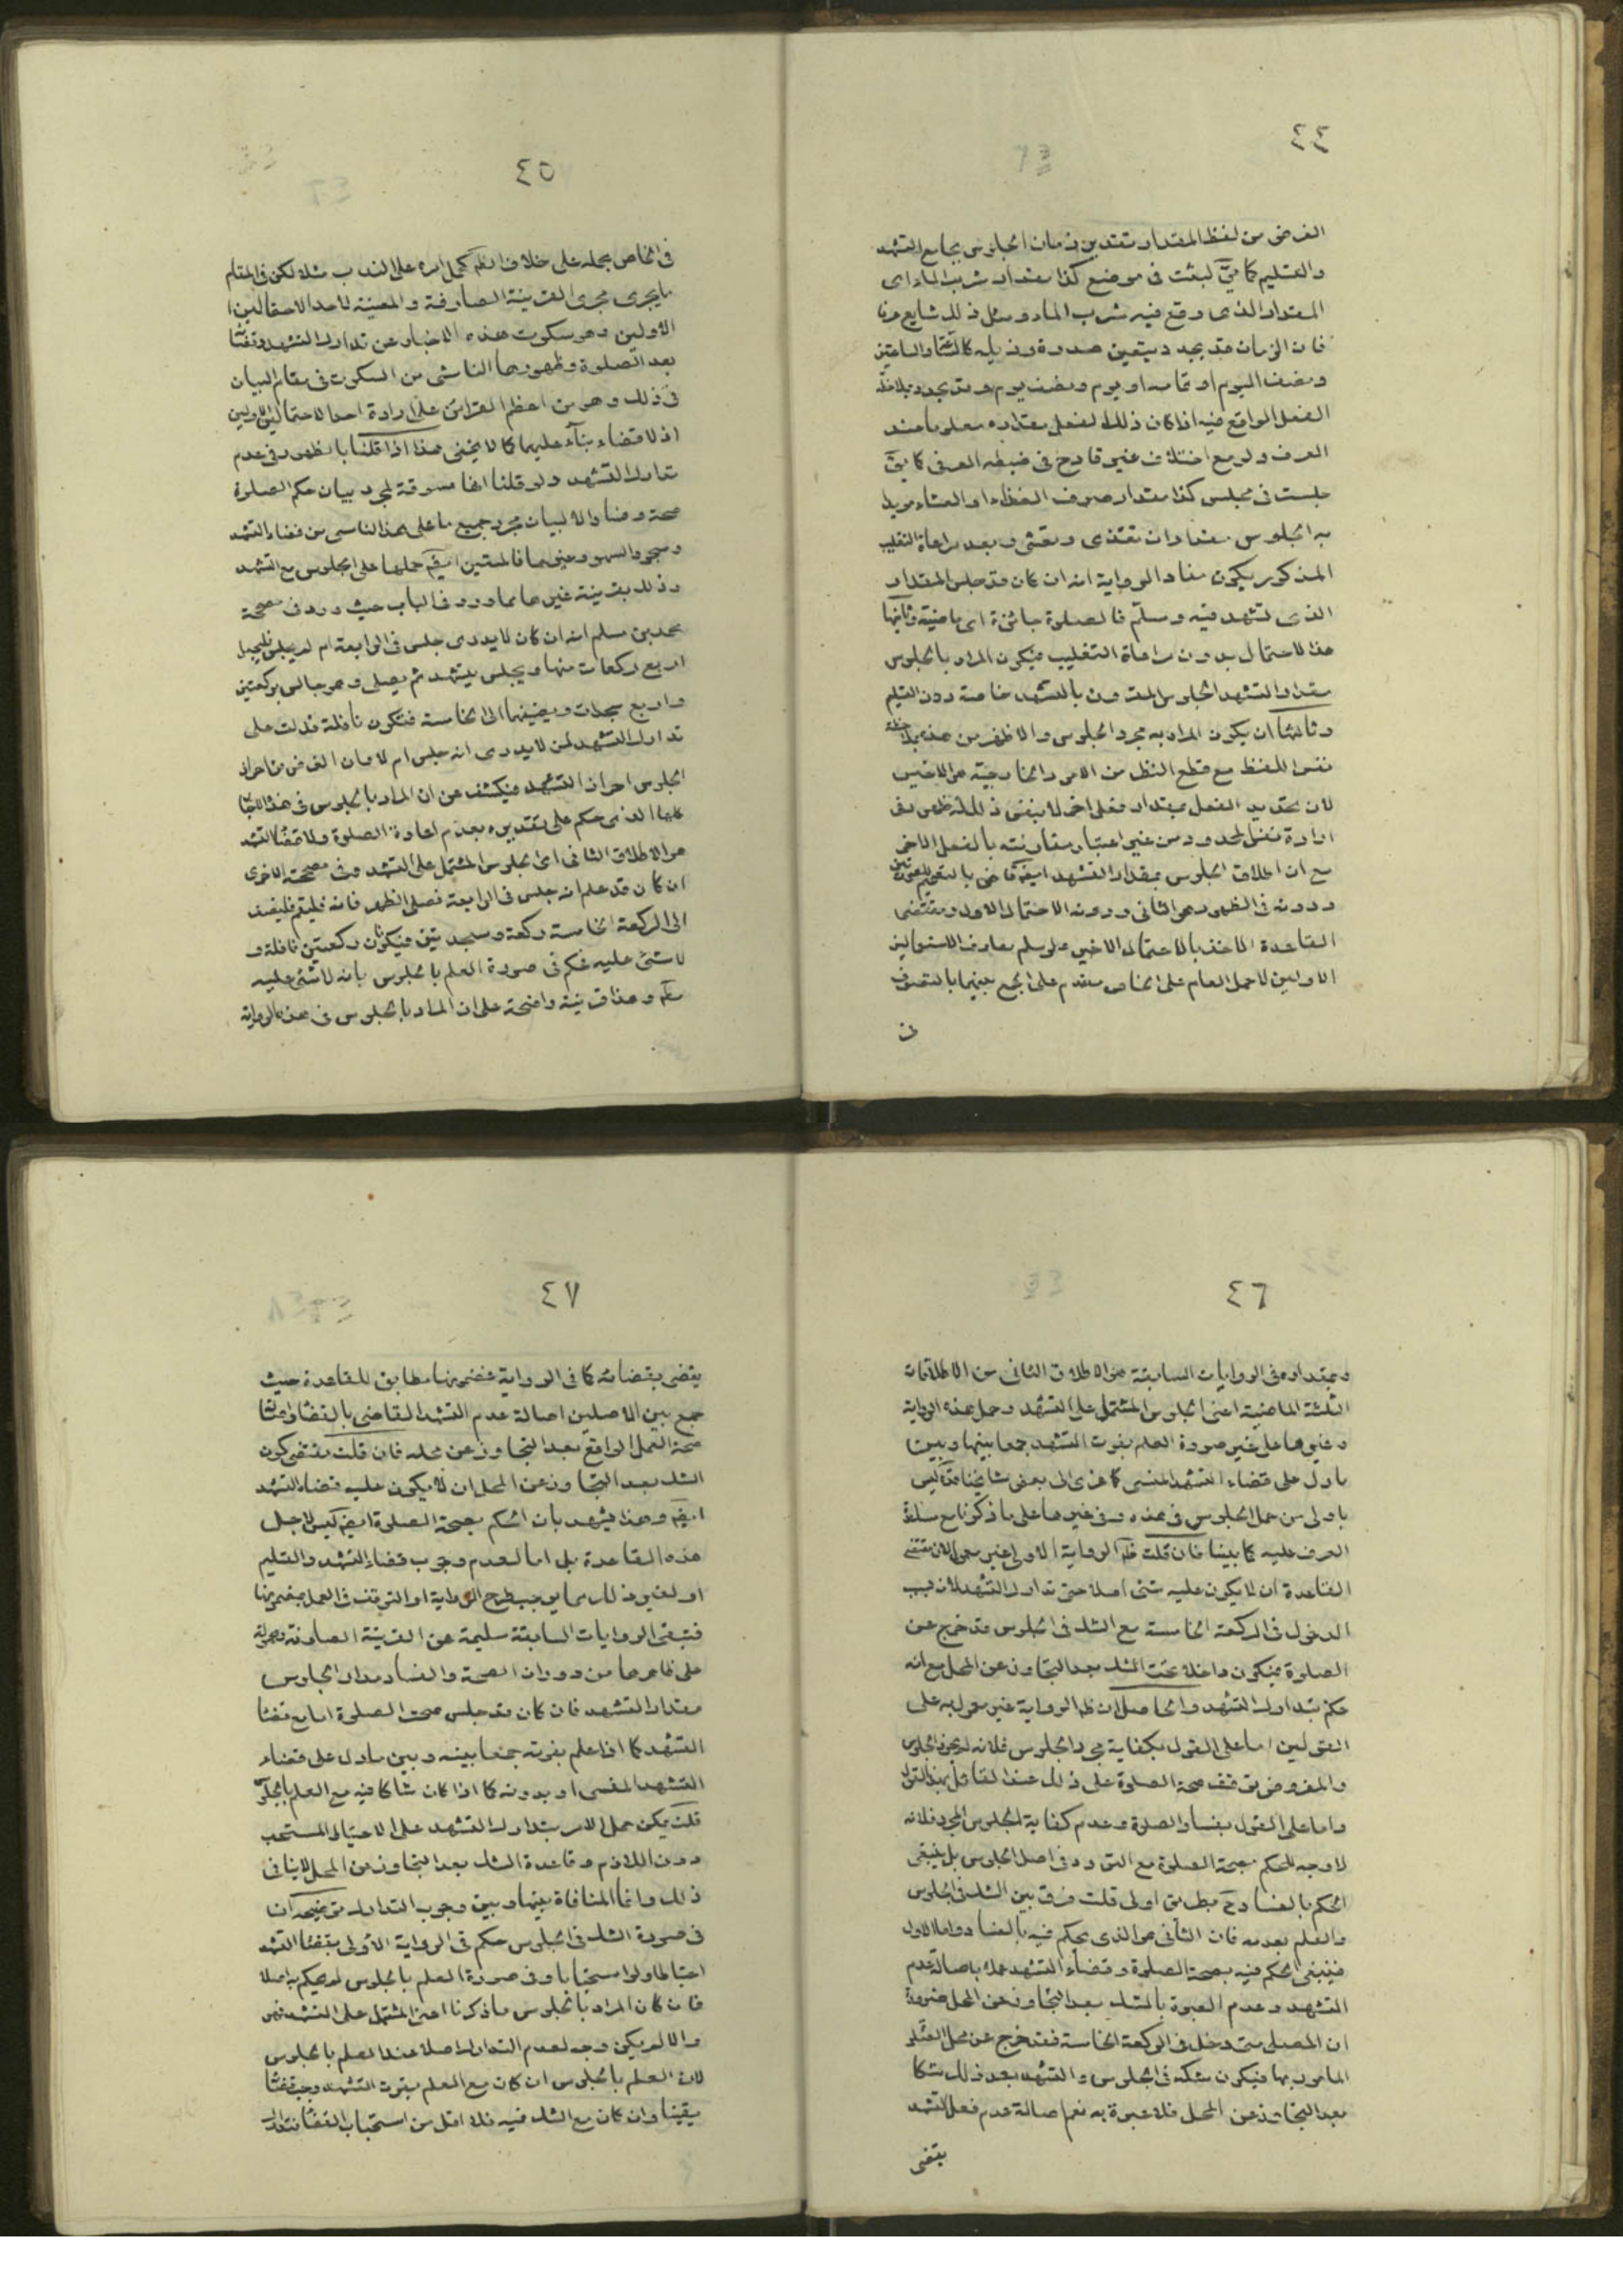 ٤٤
الغرض من لفظ المقدار تقدير زمان الجلوس بجامع التشهد
والتسليم كما يقّ لبثت فى موضع كذا مقدار شرب الماء اى
المقدار الذى وقع فيه شرب الماء ومثل ذلك شايع عرفا
فان الزمان قد يحد ويتعين صدره وذيله كالساعة والساعتين
ونصف اليوم او تمامه او يوم ونصف يوم وقد يحدد بملاحظة
الفعل الواقع فيه اذا كان ذلك الفعل مقداره معلوما عند
العرف ولو مع اختلاف غير قادح فى ضبطه العرفى كما يقّ
جلست فى مجلس كذا مقدار صرف الغذاء او العشاء مريدا
به الجلوس مقدار ان تغتذى وتعشى وبعد مراعاة التغليب
المذكور يكون مفاد الرواية انه ان كان قد جلس المقدار
الذى تشهد فيه وسلّم فالصلوة جائزة اى ماضية وثانيها
هذا الاحتمال بدون مراعاة التغليب فيكون المراد بالجلوس
مقدار التشهد الجلوس المقرون بالتشهد خاصة دون التسليم
وثالثها ان يكون المراد به مجرد الجلوس والاظهر من هذه بملاحظة
نفس اللفظ مع قطع النظر عن الامور الخارجية هو الاخير
لان تحديد الفعل بمقدار فعل اخر لا يبقى ذلك له ظهور فى
ارادة نفس المحدود من غير اعتبار مقارنته بالفعل الاخر
مع ان اطلاق الجلوس بمقدار التشهد ايضا قاض بالتعميم للصورتين
ودونه فى الظهور هو الثانى ودونه الاحتمال الاول ومقتضى
القاعدة الاخذ بالاحتمال الاخير ولو سلم تعارف الاستعمالين
الاولين لا حمل العام على الخاص مقدم على الجمع بينهما بالتصرف
فى
٤٥
فى الخاص بحمله على خلاف الظّ كحمل امره على الندب مثلا لكن فى المقام
ما يجرى مجرى القرينة الصارفة والمعينة لاحد الاحتمالين
الاولين وهو سكوت هذه الاخبار عن تدارك التشهد وقضائه
بعد الصلوة وظهورها الناشى من السكوت فى مقام البيان
فى ذلك وهو من اعظم القرائن على ارادة احد الاحتمالين الاولين
اذ لا قضاء بناء عليهما كما لا يخفى هذا اذا قلنا بالظهور فى عدم
تدارك التشهد ولو قلنا انها مسوقة لمجرد بيان حكم الصلوة
صحة وفسادا لا لبيان مجرد جميع ما على هذا الناسى من قضاء التشهد
وسجود السهو وغيرهما فالمتعين ايضا حملها على الجلوس مع التشهد
وذلك بقرينة غيرها مما ورد فى الباب حيث ورد فى صحيحة
محمد بن مسلم انه ان كان لا يدرى جلس فى الرابعة ام لم يجلس فليجعل
اربع ركعات منها ويجلس يتشهد ثم يصلى وهو جالس بركعتين
واربع سجدات ويضيفها الى الخامسة فتكون نافلة فدلت على
تدارك التشهد لمن لا يدرى انه جلس ام لا فبان الغرض من احراز
الجلوس احراز التشهد فيكشف عن ان المراد بالجلوس فى هذه الاخبار
كلها الذى حكم على تقديره بعدم اعادة الصلوة ولا قضاء التشهد
هو الاطلاق الثانى اى الجلوس المشتمل على التشهد وفى صحيحته الاخرى
ان كان قد علم انه جلس فى الرابعة فصلى الظهر فانه فليتم فليضف
الى الركعة الخامسة ركعة وسجدتين فيكونان ركعتين نافلة و
لا شئ عليه فحكم فى صورة العلم بالجلوس بانه لا شئ عليه
مطلقا وهذا قرينة واضحة على ان المراد بالجلوس فى هذه الرواية
٤٦
وبمقداره فى الروايات السابقة هو الاطلاق الثانى من الاطلاقات
الثلثة الماضية اعنى الجلوس المشتمل على التشهد وحمل هذه الرواية
وغيرها على غير صورة العلم بفوت التشهد جمعا بينها وبين
ما دل على قضاء التشهد المنسى كما عزى الى بعض مشايخنا قدّه ليس
باولى من حمل الجلوس فى هذه وفى غيرها على ما ذكرنا مع مساعدة
العرف عليه كما بينا فان قلت ظّ الرواية الاولى غير معمول لان مقتضى
القاعدة ان لا يكون عليه شئ اصلا حتى تدارك التشهد لانه بسبب
الدخول فى الركعة الخامسة مع الشك فى الجلوس قد خرج عن
الصلوة فيكون داخلا تحت الشك بعد التجاوز عن المحل مع انه
حكم بتدارك التشهد والحاصل ان ظّ الرواية غير معمول به على
القولين اما على القول بكفاية مجرد الجلوس فلانه لم يحرز الجلوس
والمفروض توقف صحة الصلوة على ذلك عند القائل بهذا القول
واما على القول بفساد الصلوة وعدم كفاية الجلوس المجرد فلانه
لا وجه للحكم بصحة الصلوة مع التردد فى اصل الجلوس بل ينبغى
الحكم بالفساد ح بطريق اولى قلت فرق بين الشك فى الجلوس
والعلم بعدمه فان الثانى هو الذى يحكم فيه بالفساد واما الاول
فينبغى الحكم فيه بصحة الصلوة وقضاء التشهد عملا باصالة عدم
التشهد وعدم العبرة بالشك بعد التجاوز عن المحل ضرورة
ان المصلى متى دخل فى الركعة الخامسة فقد خرج عن محل الصلوة
المامور بها فيكون شكه فى الجلوس والتشهد بعد ذلك شكا
بعد التجاوز عن المحل فلا عبرة به نعم اصالة عدم فعل التشهد
يقضى
٤٧
يقضى بقضائه كما فى الرواية فمضمونها مطابق للقاعدة حيث
جمع بين الاصلين اصالة عدم التشهد القاضى بالقضاء واصالة
صحة العمل الواقع بعد التجاوز عن محله فان قلت مقتضى كون
الشك بعد التجاوز عن المحل ان لا يكون عليه قضاء التشهد
ايضا وهذا يشهد بان الحكم بصحة الصلوة ايضا ليس لاجل
هذه القاعدة بل اما لعدم وجوب قضاء التشهد والتسليم
او لغير ذلك مما يوجب طرح الرواية او التوقف فى العمل بمضمونها
فتبقى الروايات السابقة سليمة عن القرينة الصارفة ومحمولة
على ظاهرها من دوران الصحة والفساد مدار الجلوس
مقدار التشهد فان كان قد جلس صحت الصلوة اما مع قضاء
التشهد كما اذا علم بفوته جمعا بينه وبين ما دل على قضاء
التشهد المنسى او بدونه كما اذا كان شاكا فيه مع العلم بالجلوس
قلت يمكن حمل الامر بتدارك التشهد على الاحتياط المستحب
دون اللازم وقاعدة الشك بعد التجاوز عن المحل لا ينافى
ذلك وانما المنافاة بينها وبين وجوب التدارك توضيحه ان
فى صورة الشك فى الجلوس حكم فى الرواية الاولى بقضاء التشهد
احتياطا ولو استحبابا وفى صورة العلم بالجلوس لم يحكم به اصلا
فان كان المراد بالجلوس ما ذكرنا اعنى المشتمل على التشهد فهو
والا لم يكن وجه لعدم التدارك اصلا عند العلم بالجلوس
لان العلم بالجلوس ان كان مع العلم بفوت التشهد وجب قضائه
يقينا وان كان مع الشك فيه فلا اقل من استحباب القضاء